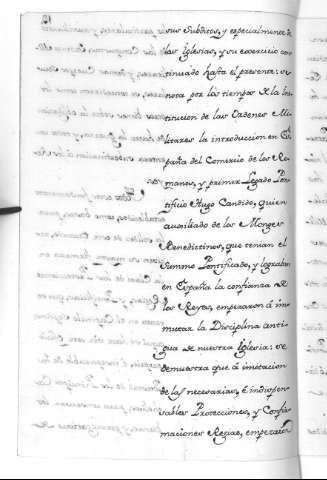 sus Subditos, y especialmente de
las Iglesias, y su exercicio con
tinuado hasta el presente: se
nota por los tiempos de la Ins
titucion de las Ordenes Mi
litares la introduccion en Es
paña del Comercio de los Ro
manos, y primer Legado Pon
tificio Hugo Candido, quien
auxiliado de los Monges
Benedictinos, que tenian el
Summo Pontificado, y lograban
en España la confianza de
los Reyes, empezaron á in
mutar la Disciplina anti
gua de nuestra Iglesia: se
demuestra que á imitacion
de las necesarias, é indispen
sables Protecciones, y Confir
maciones Regias, empezaron